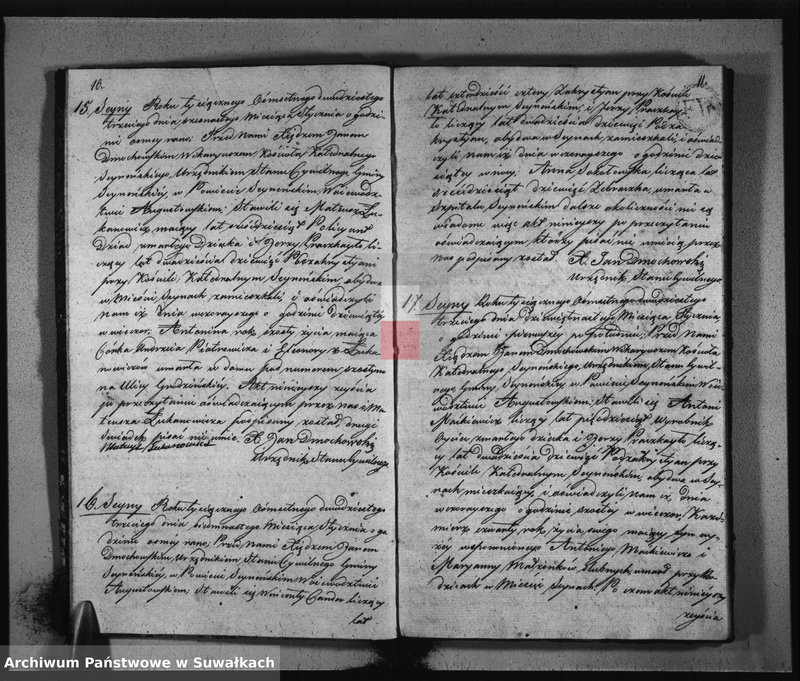 10.
15. Seyny Roku tysiącznego Ośmsetnego dwudziestego
trzeciego dnia Miesiąca Stycznia o godzi-
nie osmey rano. Przed Nami Xiędzem Janem
Dmochowskim, Wikaryuszem Kościoła Katedralnego
Seyneńskiego Urzędnikiem Stanu Cywilnego Gminy
Seyneńskiey, w Powiecie Seyneńskim, Woiewodz-
twie Augustowskiem; Stawili się Mateusz Łu-
kanowicz maiący lat trzydzieści Policyant
Dziad zmarłey Dziecka i Jerzy li-
czący lat dwadzieścia dziewięć Podzakrystyani
przy Kościele Katedralnym Seyneńskim, obydwa
w Mieście Seynach zamieszkali; i oświadczyli
nam iż dnia wczorayszego o godzinie dziewiątey
w wieczor, Antonina rok szosty życia maiąca
Córka Andrzeia Piotrowicza i Eleonory z Łuka-
nowiczów umarła w domu pod numerem szostym
na Ulicy Grodzińskiey. Akt ninieyszy zeyścia
po przeczytaniu oświadczaiącym przez nas i Ma-
teusza Łukanowicza podpisany został, drugi
świadek pisać nie umie. X. Jan Dmochowski
Mateusz Łukanowicz Urzędnik Stanu Cywilnego
16. Seyny Roku tysiącznego Ośmsetnego dwudziestego
trzeciego dnia siedmnastego Miesiąca Stycznia o go-
dzinie osmey rano, Przed Nami Xiędzem Janem
Dmochowskim, Urzędnikiem Stanu Cywilnego Gminy
Seyneńskiey, w Powiecie Seyneńskim Woiewodztwie
Augustowskiem; Stawili się Wincenty liczący
lat
11.
lat czterdzieści cztery, Zakrystyan przy Kościele
Katedralnym Seyneńskim, i Jerzy
liczący lat dwadzieścia dziewięć Podza-
krystyan, obydwa w Seynach zamieszkali; i oświad-
czyli nam iż dnia wczorayszego o godzinie dzie-
siątey w nocy, Anna Sokołowska licząca lat
sześćdziesiąt dziewięć Żebraczka, umarła w
Szpitalu Seyneńskim dalsze okoliczności nie są
wiadome więc akt ninieyszy po przeczytaniu
oświadczaiącym, którzy pisać nie umieią przez
Nas podpisany został. X. Jan Dmochowski
Urzędnik Stanu Cywilnego
17. Seyny Roku tysiącznego Ośmsetnego dwudziestego
trzeciego dnia dziewiętnastego Miesiąca Stycznia
o godzinie pierwszey z południa, Przed Nami
Xiędzem Janem Dmochowskim Wikaryuszem Kościoła
Katedralnego Seyneńskiego, Urzędnikiem Stanu Cywil-
nego Gminy Seyneńskiey w Powiecie Seyneńskim Woie-
wodztwie Augustowskiem; Stawili się Antoni
Maćkiewicz liczący lat pięćdziesiąt Wyrobnik
Oyciec zmarłego dziecka i Jerzy liczą-
cy lat dwadzieścia dziewięć Podzakrystyan przy
Kościele Katedralnym Seyneńskim, obydwa w Sey-
nach mieszkaiący i oświadczyli Nam iż dnia
wczorayszego o godzinie szostey w wieczor, Kazi-
mierz czwarty rok życia swego maiący Syn wy-
żey wspomnionego Antoniego Maćkiewicza i
Maryanny Małżonków ślubnych umarł przy Ro-
dzicach w Mieście Seynach. Po czem akt ninieyszy
zeyścia
Archiwum Państwowe w Suwałkach